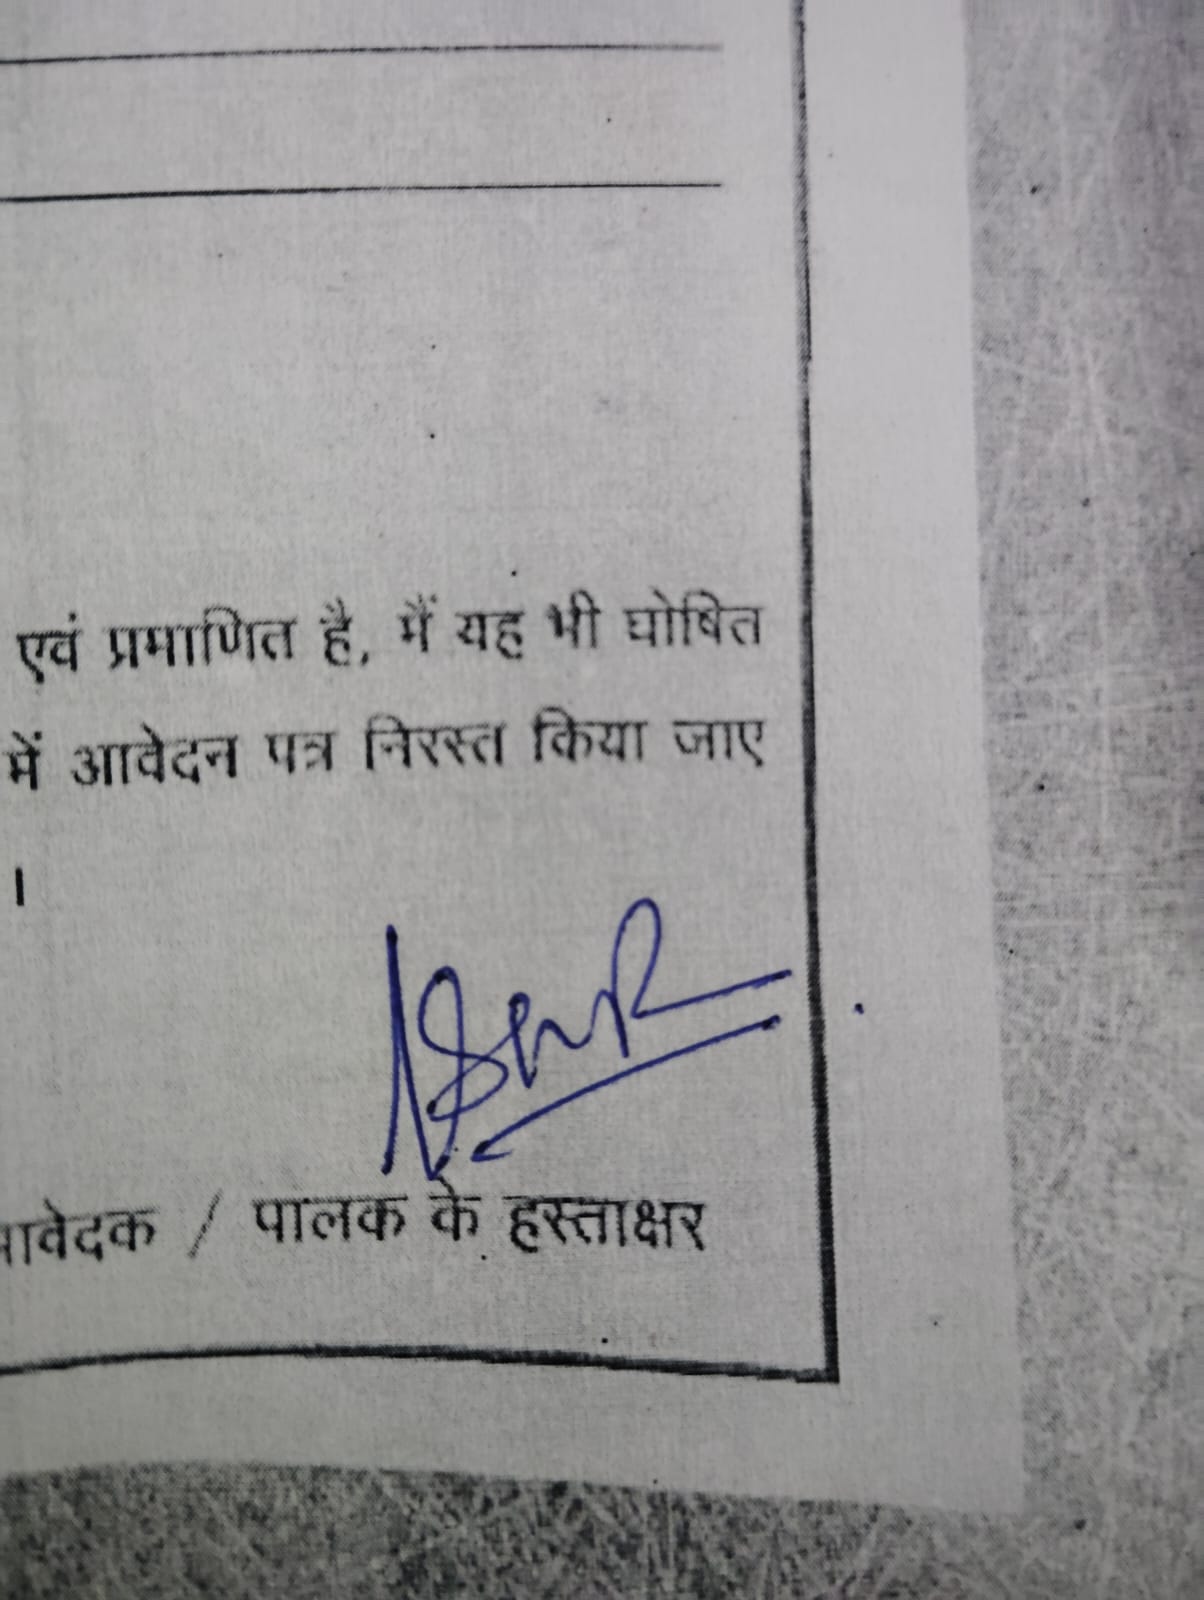 एवं प्रमाणित है, मैं यह भी घोषित
में आवेदन पत्र निरस्त किया जाए
।
/ पालक के हस्ताक्षर